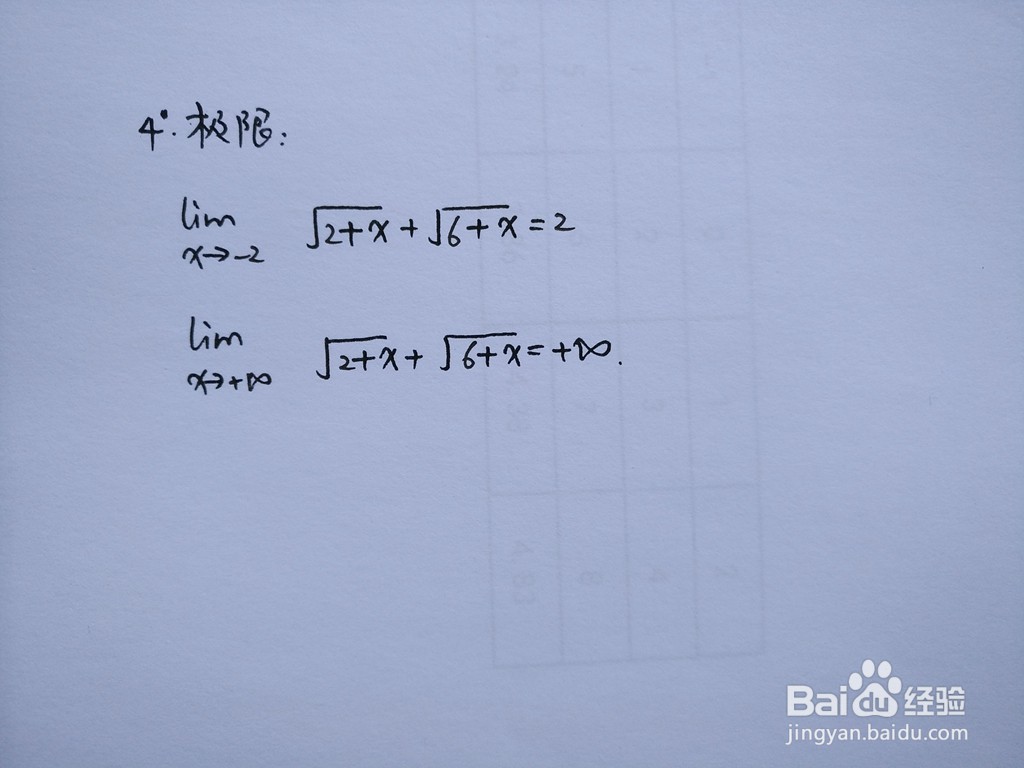 4°. 极限:
lim x→-2 √2+x + √6+x = 2
lim x→+∞ √2+x + √6+x = +∞.
Bai du 经验
jingyan.baidu.com